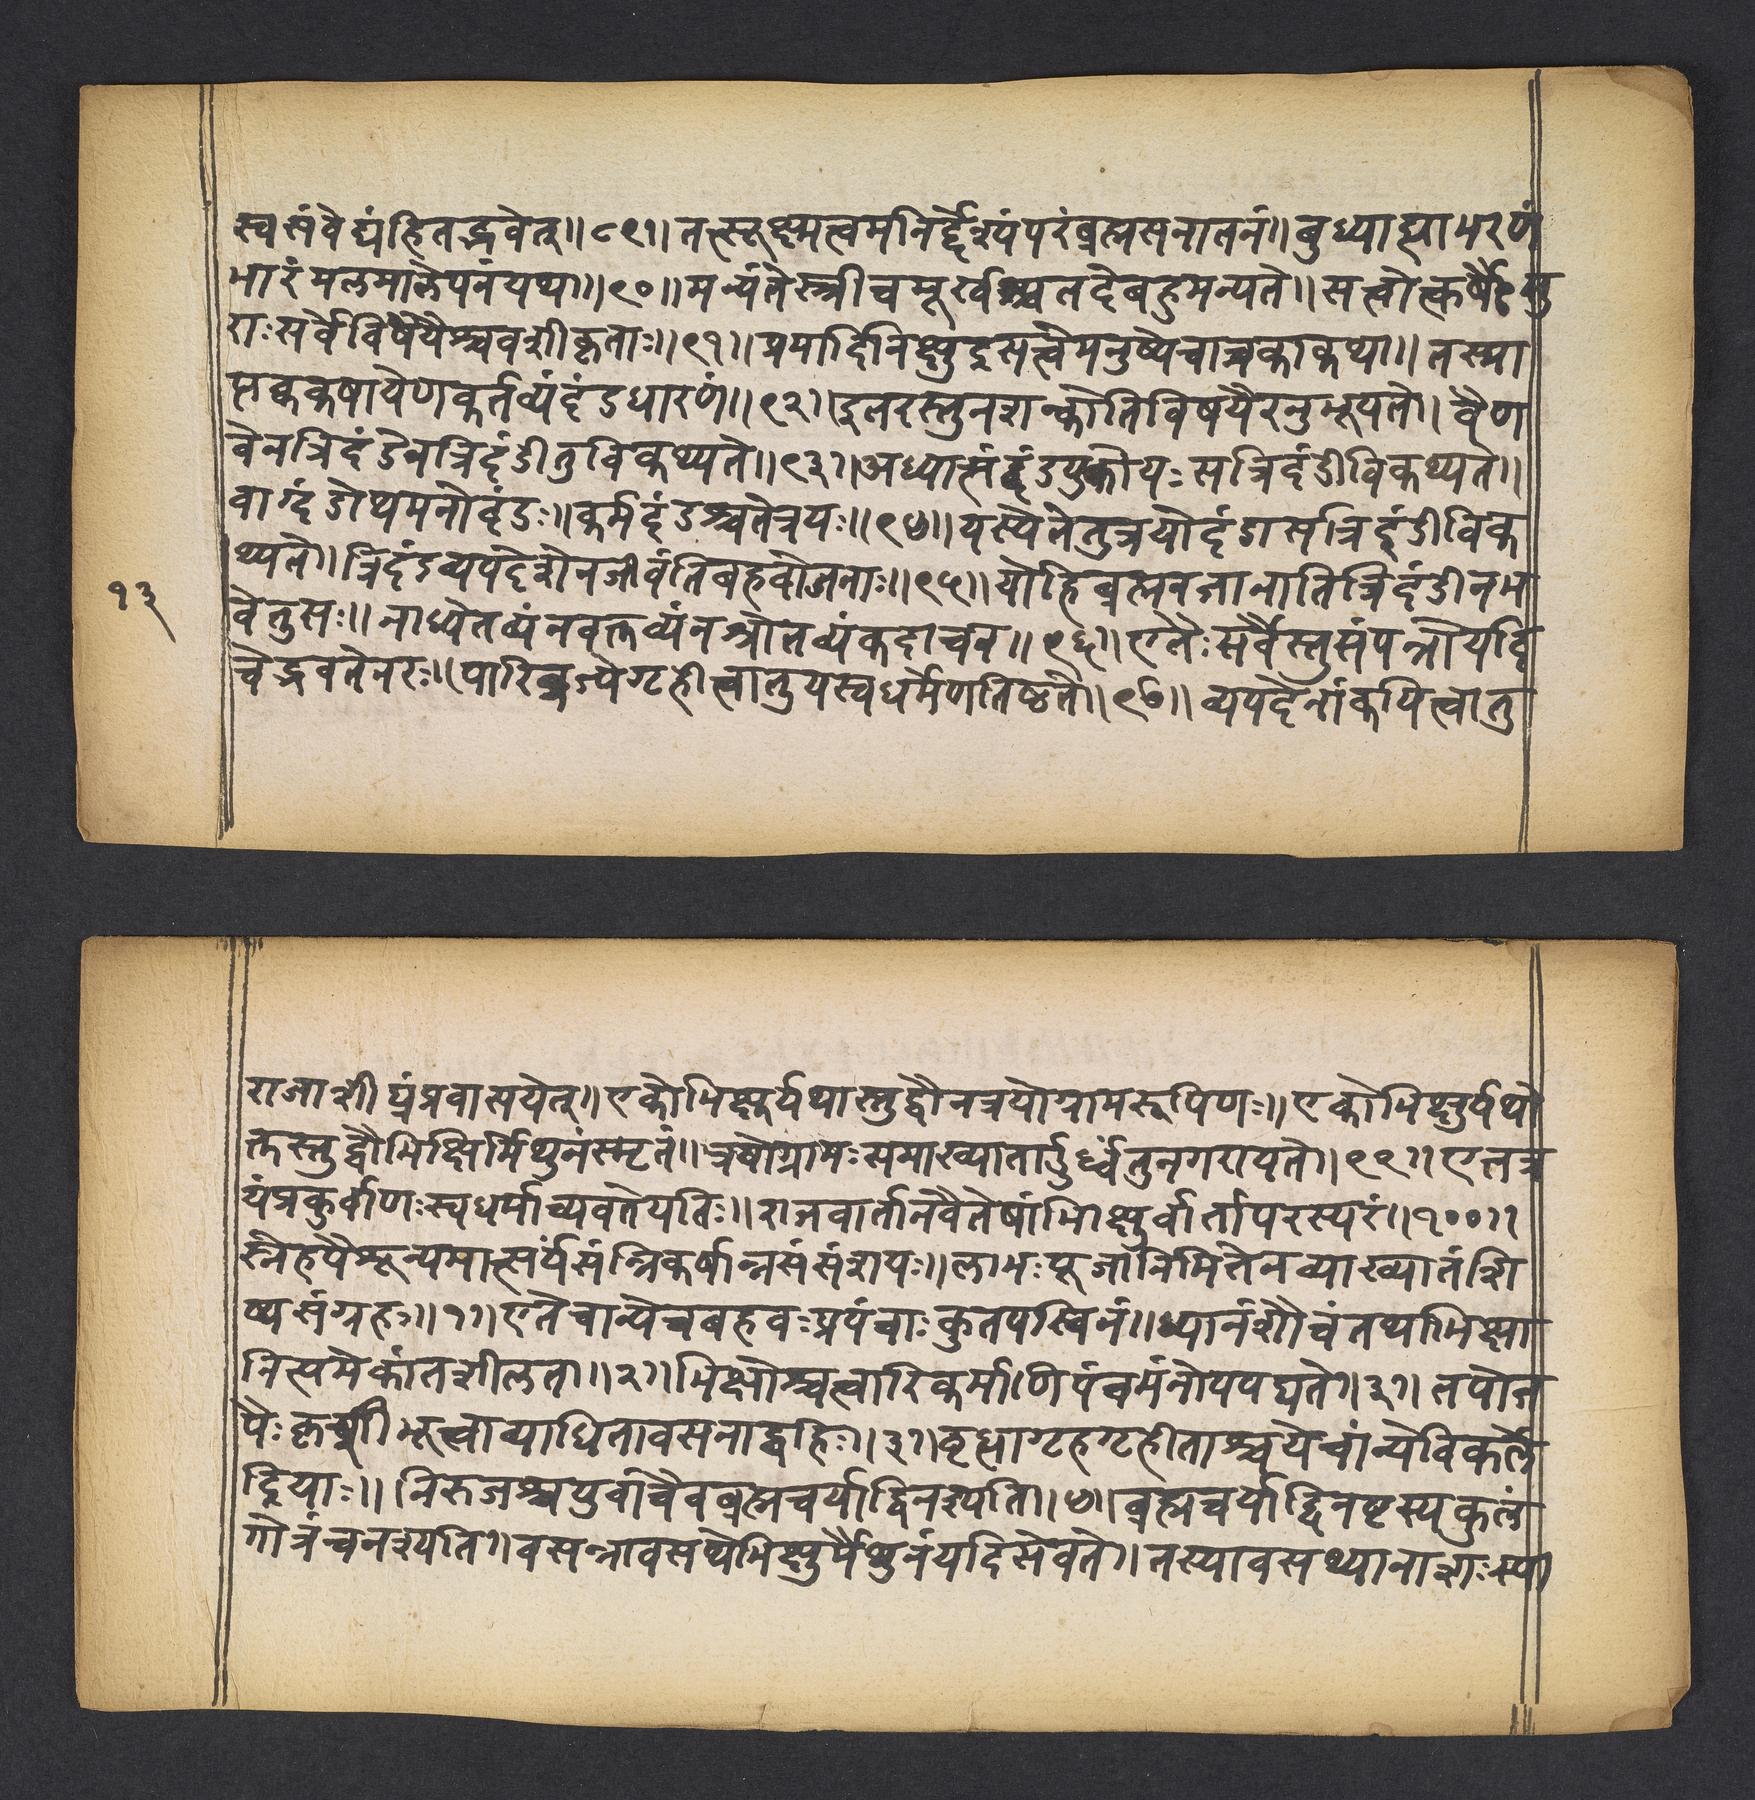 स्वसंवेद्यंहितद्भवेत्॥८९॥तत्सूक्ष्मत्वमनिर्द्देश्यंपरंब्रह्मसनातनं॥बुध्याह्याभरणं
भारंमलमालेपनंयथा॥९०॥मन्यंतेस्त्रीचमूर्खश्चतदेबहुमन्यते॥सत्वोत्कर्षैःसु
राःसर्वेविषयैश्चवशीकृताः॥९१॥प्रमादिनिक्षुद्रसत्वेमनुष्येचात्रकाकथा॥तस्मा
त्पक्वकषायेणकर्तव्यंदंडधारणं॥९२॥इतरस्तुनशक्नोतिविषयैरनुभूयते॥वैण
वेनत्रिदंडेनत्रिदंडीतुविकथ्यते॥९३॥अध्यात्मंदंडयुक्तोयःसत्रिदंडीविकथ्यते॥
वाग्दंडोथमनोदंडः॥कर्मदंडश्चतेत्रयः॥९४॥यस्यैतेतुत्रयोदंडासत्रिदंडीविक
थ्यते॥त्रिदंडव्यपदेशेनजीवंतिबहवोजनाः॥९५॥योहिब्रह्मनजानातित्रिदंडीनभ
१३
वेतुसः॥नाध्येतव्यंनवक्तव्यंनश्रोतव्यंकदाचन॥९६॥एतैःसर्वैस्तुसंपन्नोयदि
चेद्भवतेनरः॥पारिव्रज्येगृहीत्वातुयस्वधर्मेणतिष्ठते॥९७॥व्यपदेशांकपित्वातु
राजाशीघ्रंप्रवासयेत्॥एकोभिक्षुर्यथास्तुद्वौनत्रयोग्रामरूपिणः॥एकोभिक्षुर्यथो
क्तस्तुद्वौभिक्षिर्मिथुनंस्मृतं॥त्रयोग्रामःसमाख्यातार्दुर्ध्वंतुनगरायते॥९९॥एतत्र
यंप्रकुर्वाणःस्वधर्माच्यवतेयतिः॥राजवार्तानवैतेषांभिक्षुर्वार्तापरस्परं॥१००॥
स्नेहपैशून्यमात्सर्यंसंन्निकर्षान्नसंसंशयः॥लाभःपूजांनिमितेनव्याख्यातंशि
ष्यसंग्रहः॥१॥एतेचान्येचबहवःप्रपंचाःकुतपस्विनं॥ध्यानंशौचंतथाभिक्षा
नित्यमेकांतशीलता॥२॥भिक्षोश्चत्वारिकर्माणिपंचमंनोपपद्यते॥३॥तपोज
पैःकृशीभूत्वाव्याधितावसनाद्वहिः॥३॥वृद्धागृहगृहीताश्चयेचांन्येविकलें
द्रियाः॥निरुजश्चपुर्वाचैवब्रह्मचर्याद्विनश्यति॥४॥ब्रह्मचर्याद्विनष्टस्यकुलं
गोत्रंचनश्यति॥वसन्नावसथेभिक्षुर्मैथुनंयदिसेवते॥तस्यावसथ्यानाशःस्या